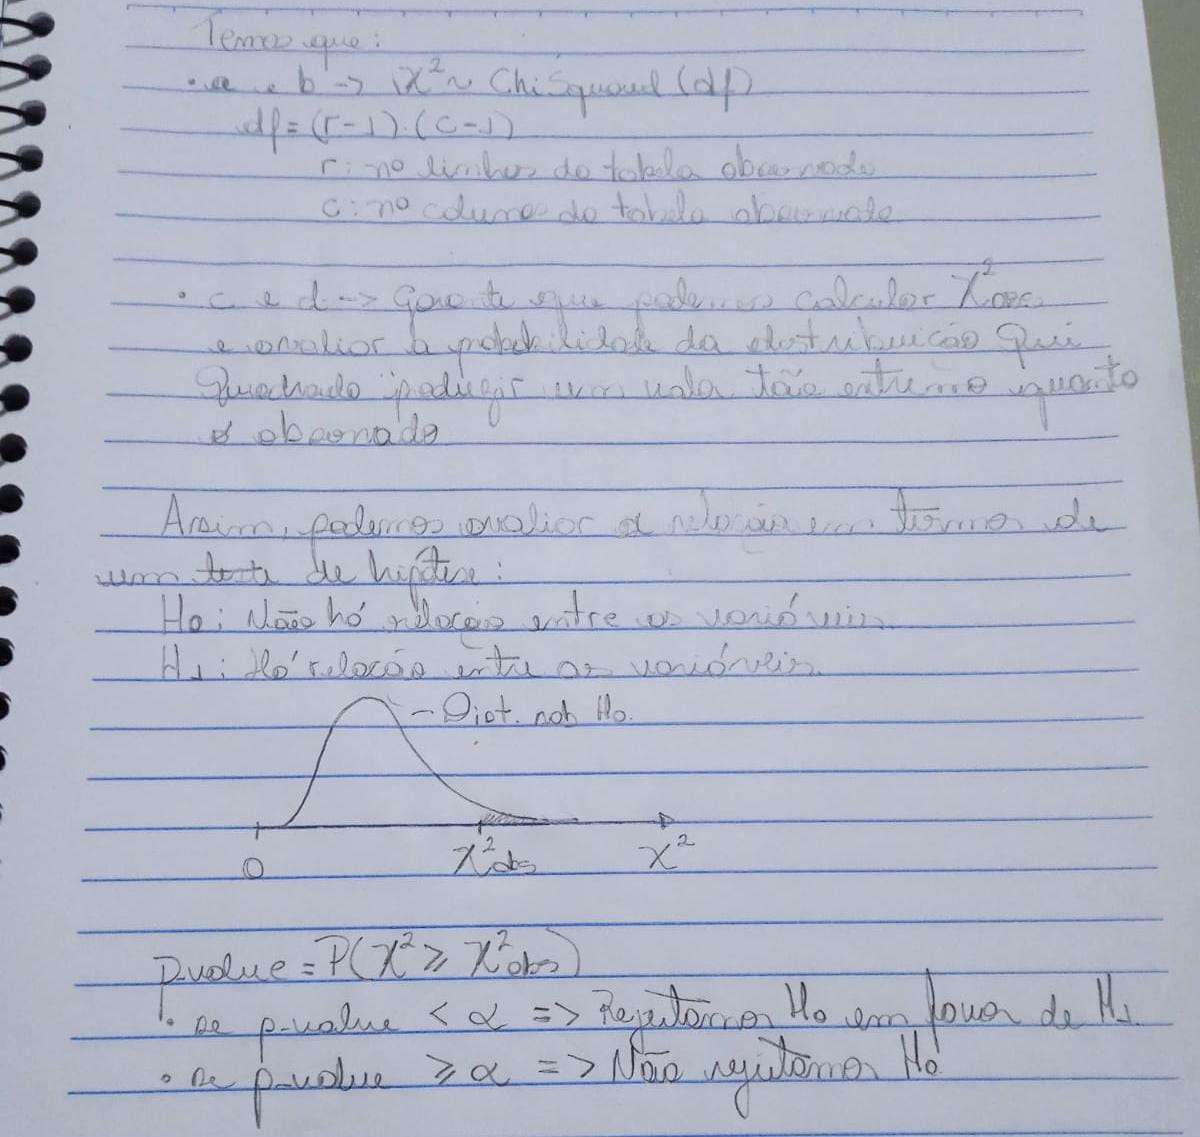 Temos que:
• a e b -> X² ~ ChiSquared (df)
df = (r-1).(c-1)
r: nº linhas da tabela observada
c: nº colunas da tabela observada
• c e d -> Garante que podemos calcular X²obs
e avaliar a probabilidade da distribuição Qui
Quadrado produzir um valor tão extremo quanto
o observado
Assim, podemos avaliar a relação em termos de
um teste de hipótese:
H0: Não há relação entre as variáveis.
H1: Há relação entre as variáveis.
- Dist. sob H0.
0 X²obs X²
p-value = P(X² ⩾ X²obs)
• se p-value < α => Rejeitamos H0 em favor de H1.
• se p-value ⩾ α => Não rejeitamos H0